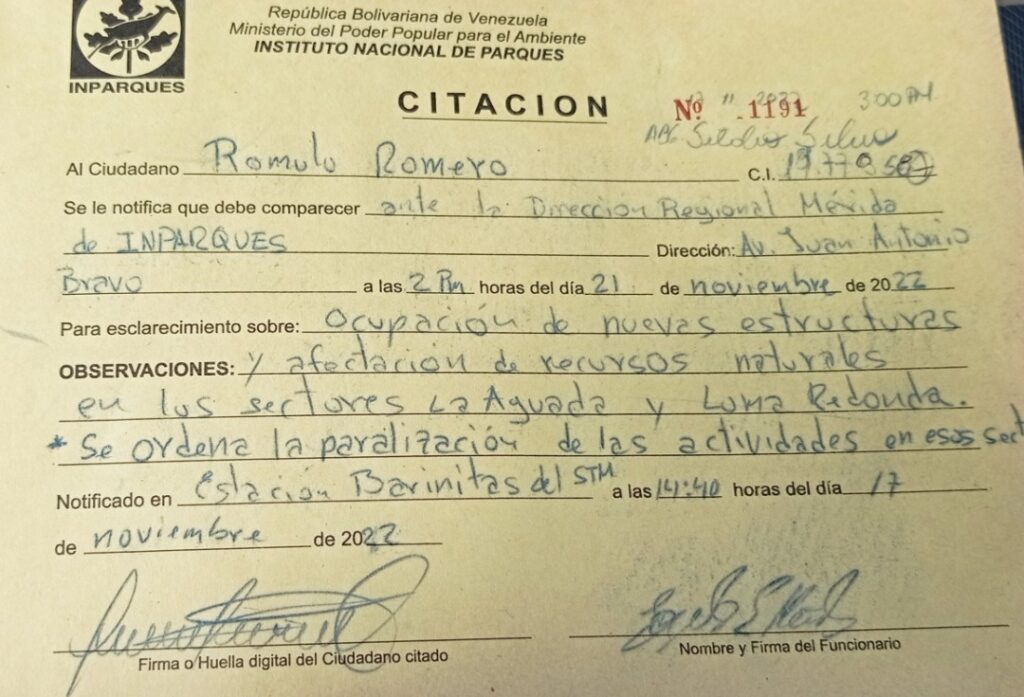 República Bolivariana de Venezuela
Ministerio del Poder Popular para el Ambiente
INSTITUTO NACIONAL DE PARQUES
INPARQUES
CITACION Nº 1191 3:00 PM
Al Ciudadano Romulo Romero C.I.
Se le notifica que debe comparecer ante la Dirección Regional Mérida
de INPARQUES Dirección: Av. Juan Antonio
Bravo a las 2 Pm horas del día 21 de noviembre de 2022
Para esclarecimiento sobre: Ocupación de nuevas estructuras
OBSERVACIONES: y afectación de recursos naturales
en los sectores La Aguada y Loma Redonda.
* Se ordena la paralización de las actividades en esos sect
Notificado en Estación Barinitas del STM a las 14:40 horas del día 17
de noviembre de 2022
Firma o Huella digital del Ciudadano citado
Nombre y Firma del Funcionario